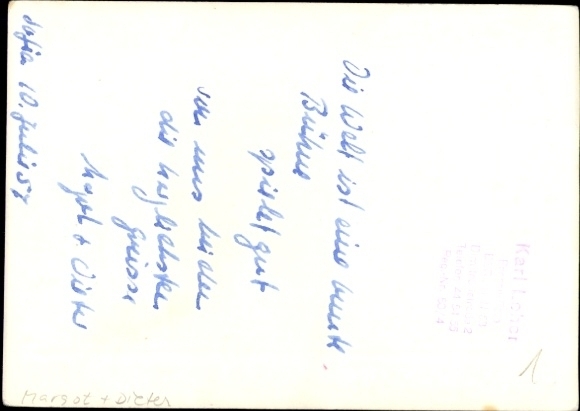 Die Welt ist eine bunte
Bühne
spielet gut
von uns beiden
die herzlichsten
Grüsse
Margot + Dieter
Sofia 10. Juli 57
Karl
1
Margot + Dieter